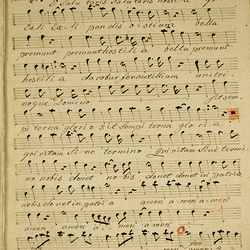 O salutaris salutaris hosti
cæli cæli pandis ostium bella
premunt premunt hostilia bella premunt
hostilia da robur fer auxilium uni tri
noque Domino sit sem
pi terna glori a sit sempi terna glo ri a
qui vitam si ne termino qui vitam sine termi
no bis donet no bis donet no bis donet in patria
nobis donet in patri a amen a men a men
amen amen a men a men